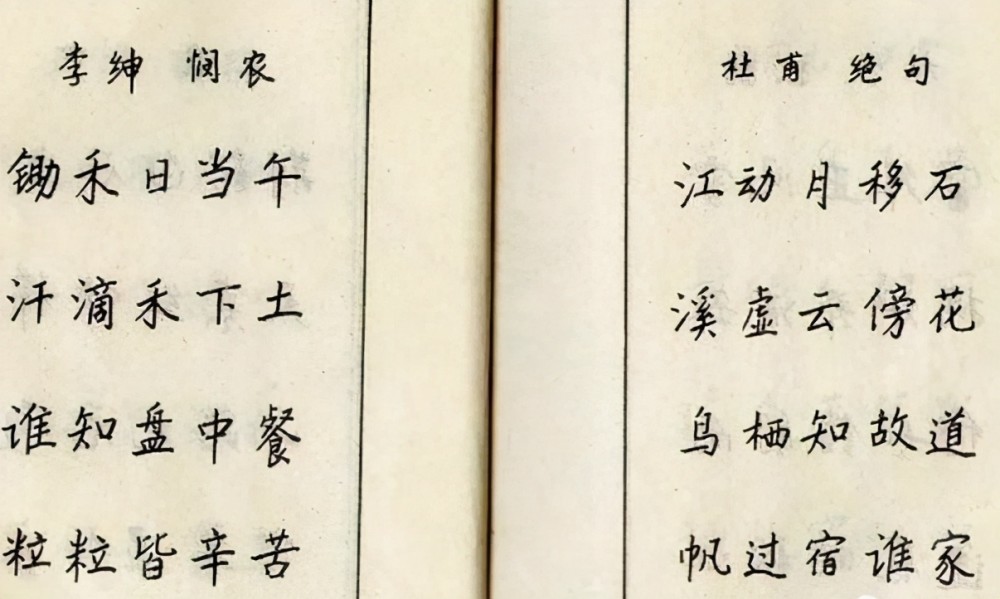 李绅 悯农
锄禾日当午
汗滴禾下土
谁知盘中餐
粒粒皆辛苦
杜甫 绝句
江动月移石
溪虚云傍花
鸟栖知故道
帆过宿谁家